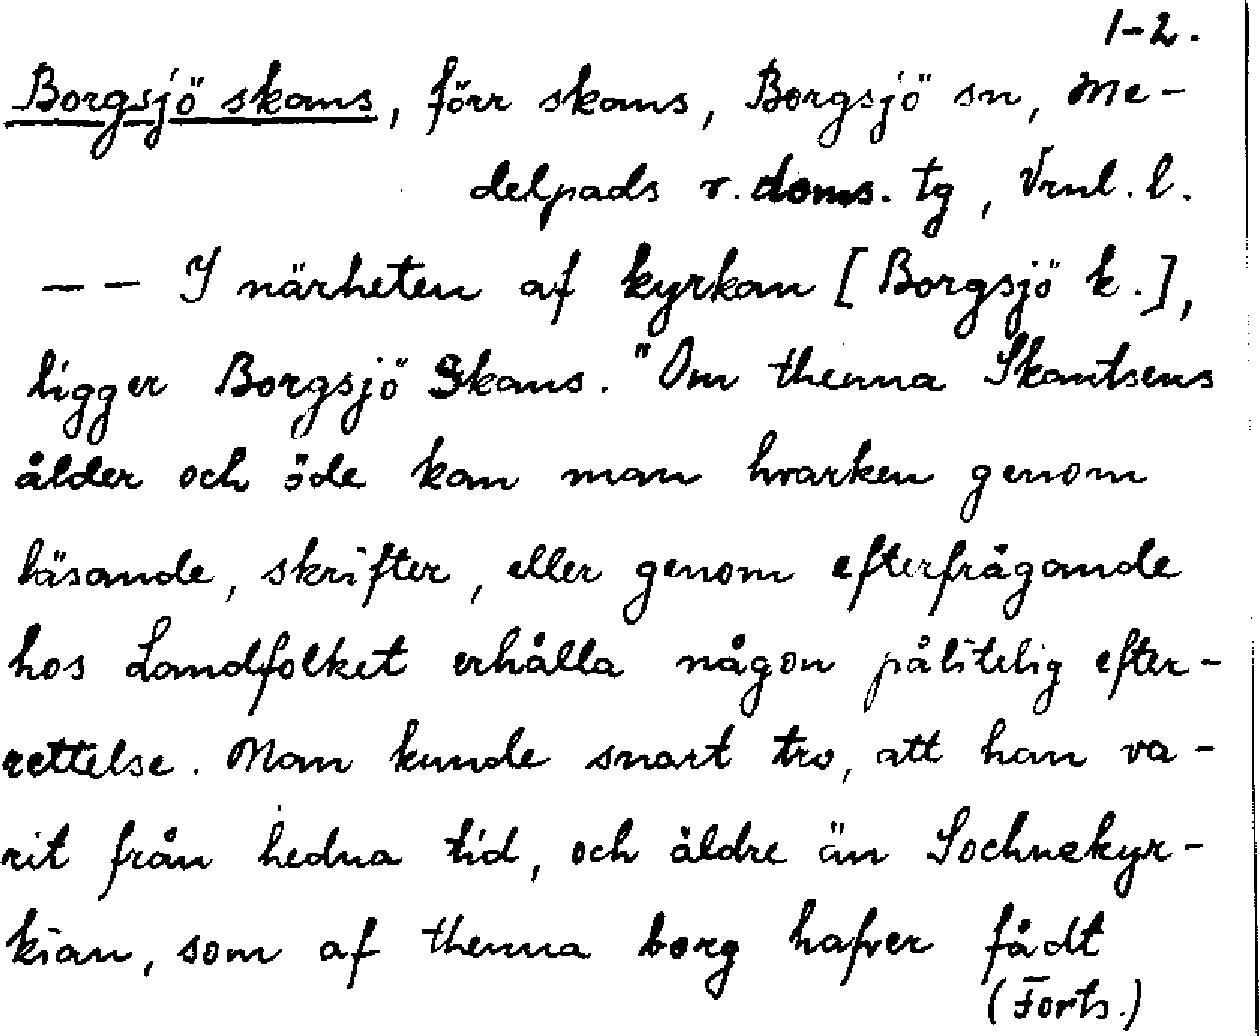 1-2.
Borgsjö skans, förr skans, Borgsjö sn, Me-
delpads v. doms. tg, Vrnl. l.
-- I närheten af kyrkan [Borgsjö k.],
ligger Borgsjö Skans. "Om thenna Skantsens
ålder och öde kan man hvarken genom
läsande, skrifter, eller genom efterfrågande
hos Landfolket erhålla någon pålitelig efter-
rettelse. Man kunde snart tro, att han va-
rit från hedna tid, och äldre än Sochnekyr-
kian, som af thenna borg hafver fådt
(Forts.)